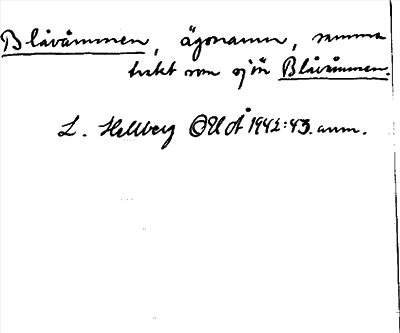 Blåvåmmen, ägonamn, samma
trakt som sjön Blåvåmmen.
L. Hellberg OUÅ 1942:43. anm.